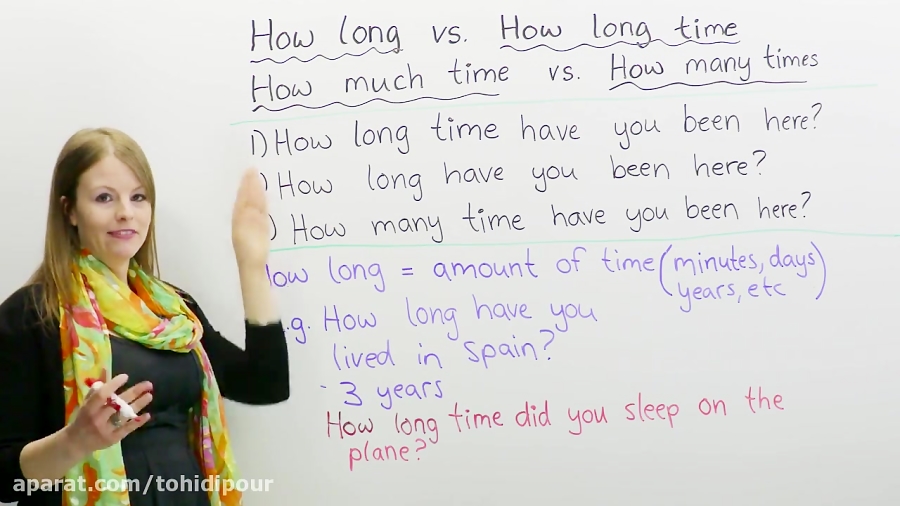 How long vs. How long time
How much time vs. How many times
1) How long time have you been here?
) How long have you been here?
) How many time have you been here?
How long = amount of time (minutes, days
years, etc)
.g. How long have you
lived in Spain?
- 3 years
How long time did you sleep on the
plane?
aparat.com/tohidipour